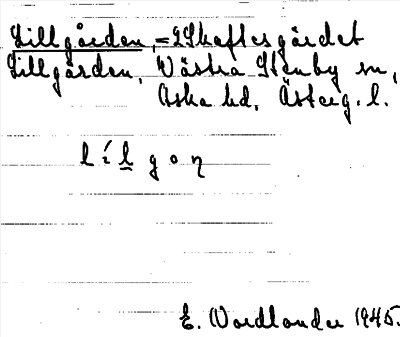 Lillgården, = 2 Skaftesgärdet
Lillgården, Västra Stenby sn,
Aska hd, Österg. l.
lílgoŋ
E. Nordlander 1945.